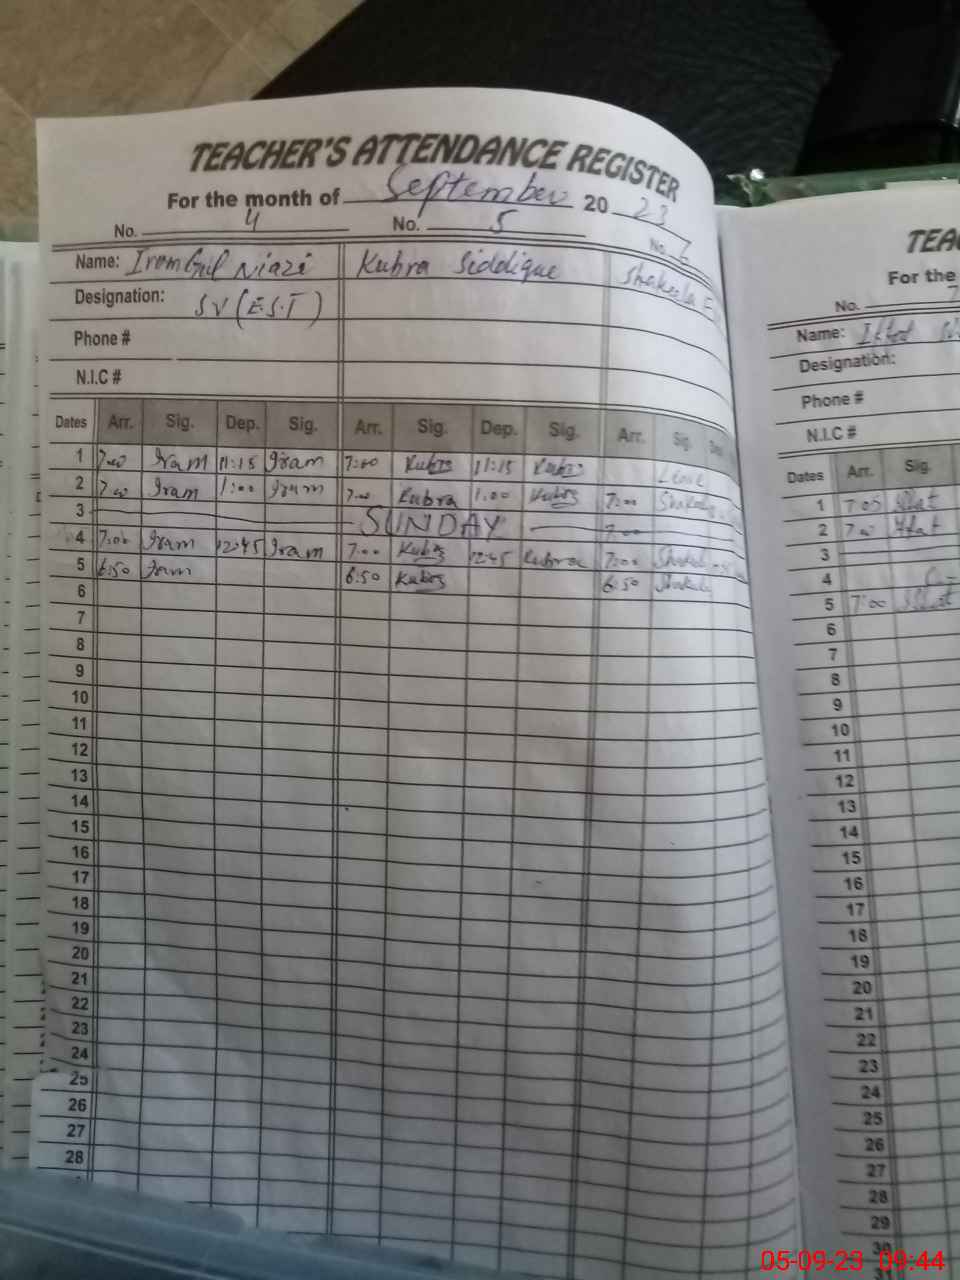 TEACHER'S ATTENDANCE REGISTER
For the month of September 2023
No. 4 No. 5 No. 6
Name: Irom Gul Niazi Kubra Siddique Shakeela
Designation: SV (E.S.T)
Phone #
N.I.C #
Dates Arr. Sig. Dep. Sig. Arr. Sig. Dep. Sig. Arr. Sig.
1 7:00 Iram 11:15 Iram 7:00 Kubra 11:15 Kubra Leave
2 7:00 Iram 1:00 Iram 7:00 Kubra 1:00 Kubra 7:00
3 SUNDAY
4 7:00 Iram 12:45 Iram 7:00 Kubra 12:45 Kubra 7:00
5 6:50 Iram 6:50 Kubra 6:50
6
7
8
9
10
11
12
13
14
15
16
17
18
19
20
21
22
23
24
25
26
27
28
TEA
For the
No. 7
Name:
Designation:
Phone #
N.I.C #
Dates Arr. Sig.
1 7:05
2 7:00
3
4
5 7:00
6
7
8
9
10
11
12
13
14
15
16
17
18
19
20
21
22
23
24
25
26
27
28
29
30
05-09-23 09:44